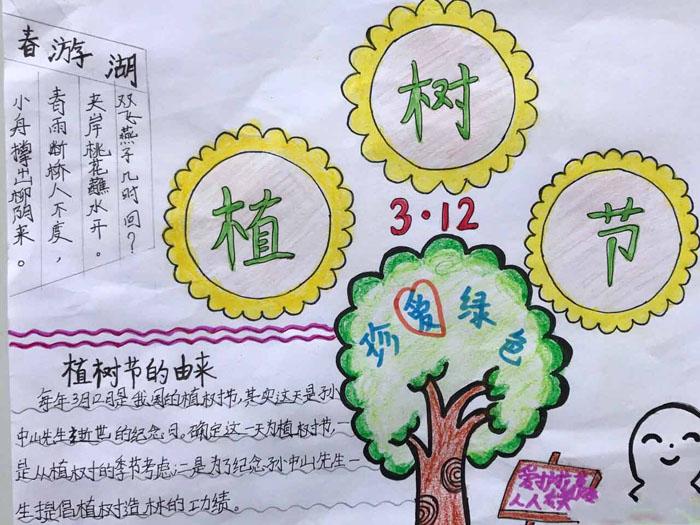 春游湖
双飞燕子几时回？
夹岸桃花蘸水开。
春雨断桥人不度，
小舟撑出柳阴来。
植树节
3·12
珍爱绿色
植树节的由来
每年3月12日是我国的植树节,其实这天是孙
中山先生逝世的纪念日。确定这一天为植树节,一
是从植树的季节考虑;二是为了纪念孙中山先生一
生提倡植树造林的功绩。
爱护
人人